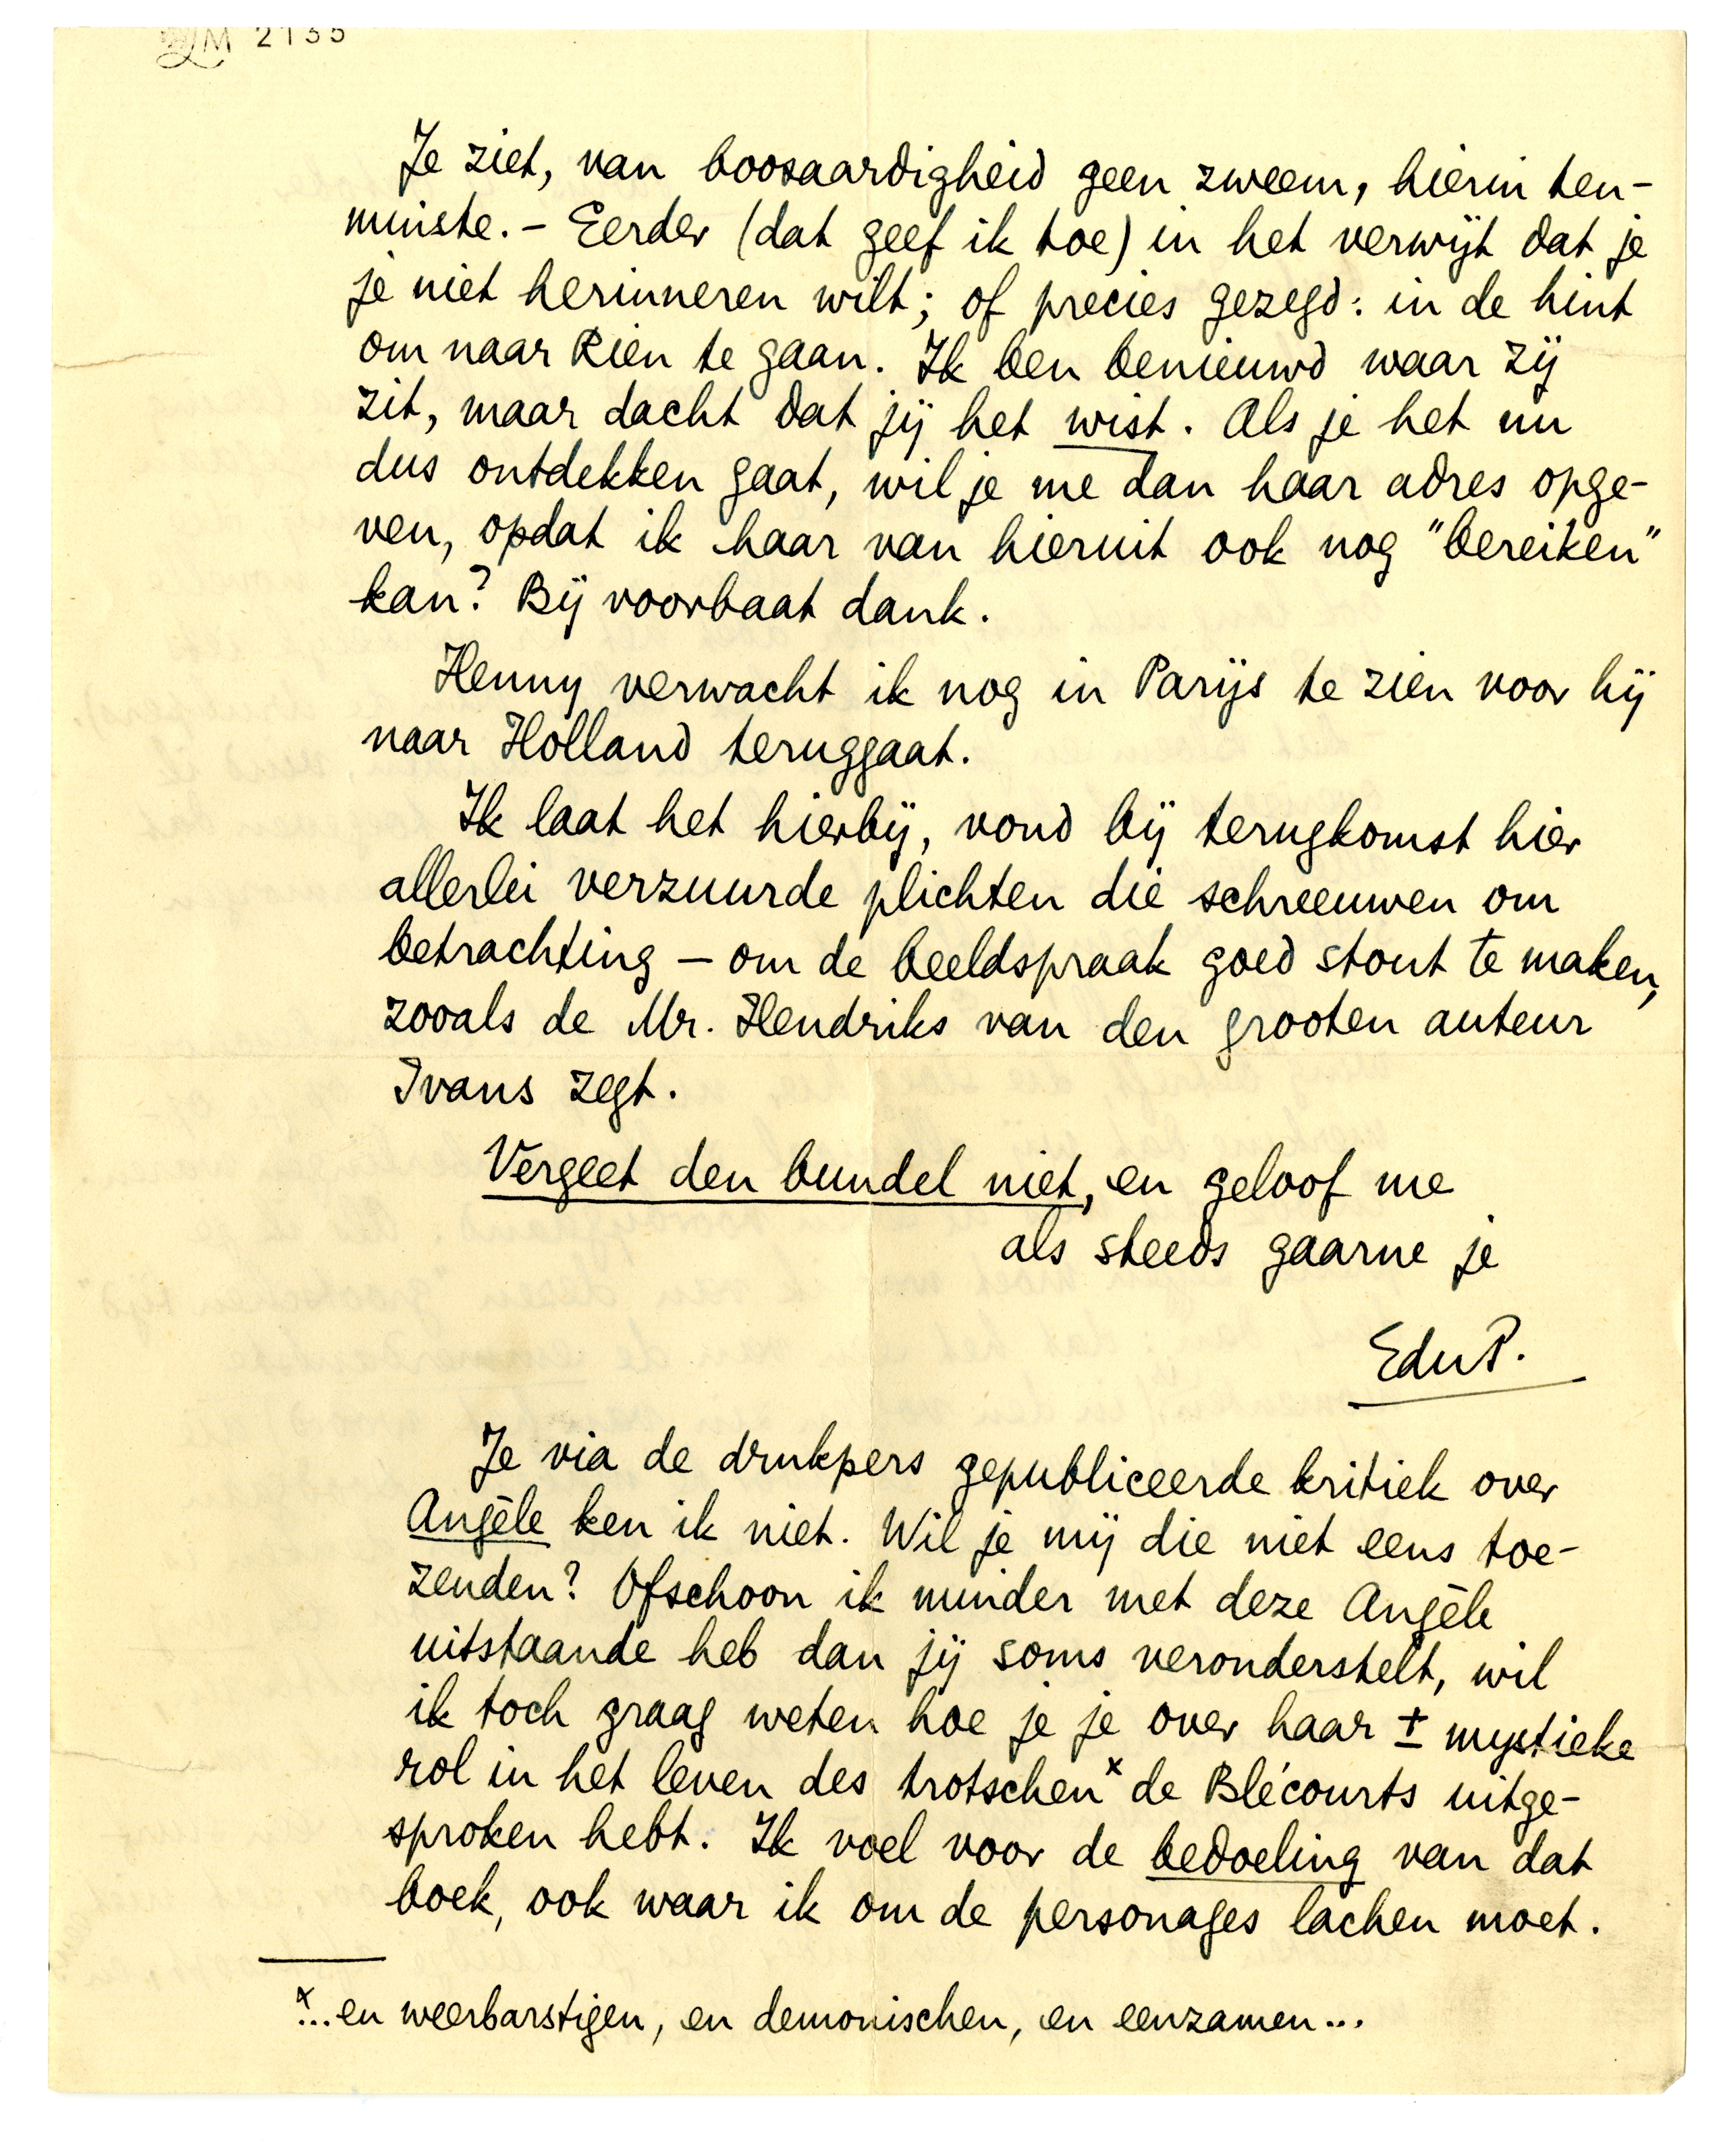 LM 2135
Je ziet, van boosaardigheid geen zweem, hierin ten-
minste. – Eerder (dat geef ik toe) in het verwijt dat je
je niet herinneren wilt; of precies gezegd: in de hint
om naar Rien te gaan. Ik ben benieuwd waar zij
zit, maar dacht dat jij het wist. Als je het nu
dus ontdekken gaat, wil je me dan haar adres opge-
ven, opdat ik haar van hieruit ook nog "bereiken"
kan? Bij voorbaat dank.
Henny verwacht ik nog in Parijs te zien voor hij
naar Holland teruggaat.
Ik laat het hierbij, vond bij terugkomst hier
allerlei verzuurde plichten die schreeuwen om
betrachting – om de beeldspraak goed stout te maken,
zooals de Mr. Hendriks van den grooten auteur
Ivans zegt.
Vergeet den bundel niet, en geloof me
als steeds gaarne je
EduP.
Je via de drukpers gepubliceerde kritiek over
Angèle ken ik niet. Wil je mij die niet eens toe-
zenden? Ofschoon ik minder met deze Angèle
uitstaande heb dan jij soms veronderstelt, wil
ik toch graag weten hoe je je over haar ± mystieke
rol in het leven des trotschen x de Blécourts uitge-
sproken hebt. Ik voel voor de bedoeling van dat
boek, ook waar ik om de personages lachen moet.
x ...en weerbarstigen, en demonischen, en eenzamen...